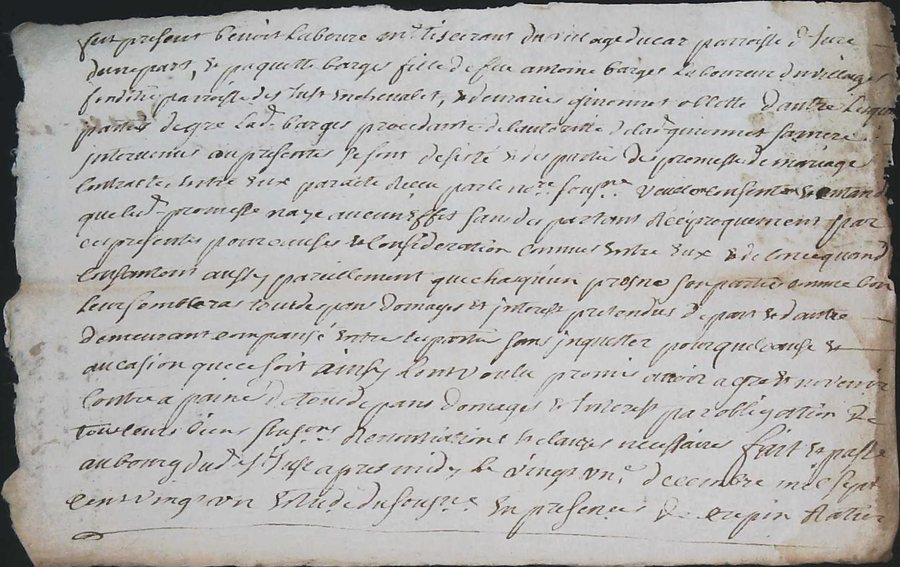 fut present benoit Laboure m^re tisserant du village ducar parroisse d' Jure
dune part, & paquette barges fille de feu antoine barges Laboureur du village
parroisse des St Just en chevalet, & demarie ginonnet & dautre
parties degre Lad. barges procedante de lautorite de lad. ginonnet sa mere
intervenus au presentes se sont desisté & departie des promesse de mariage
Contractes entre eux par acte Receu par le no^re sous^ne veuden consentent &
que lesd. promesse naye aucun effet sans des partant Reciproquement par
ces presentes pour causes & Consideration Connues entre eux & de ce
Consantant aussy pareillement que chasqun prene son partie comme bon
Leur semblera tous depans domages & interests pretendus de part & dautre
demeurant compansé entre les partie sans inquetter pour quel cause &
aucasion que ce soit ainsy Lont voulu promis avoir agre & ne venir
Contre a paine de tous depans domages & interest par obligation de
tous leurs biens Renontiations & clauzes necessaires fait & passé
au bourg dud. St Just apres midy le vingt un^e decembre mil sept
cent vingt un etude du sous^ne en presences de crepin Ratier